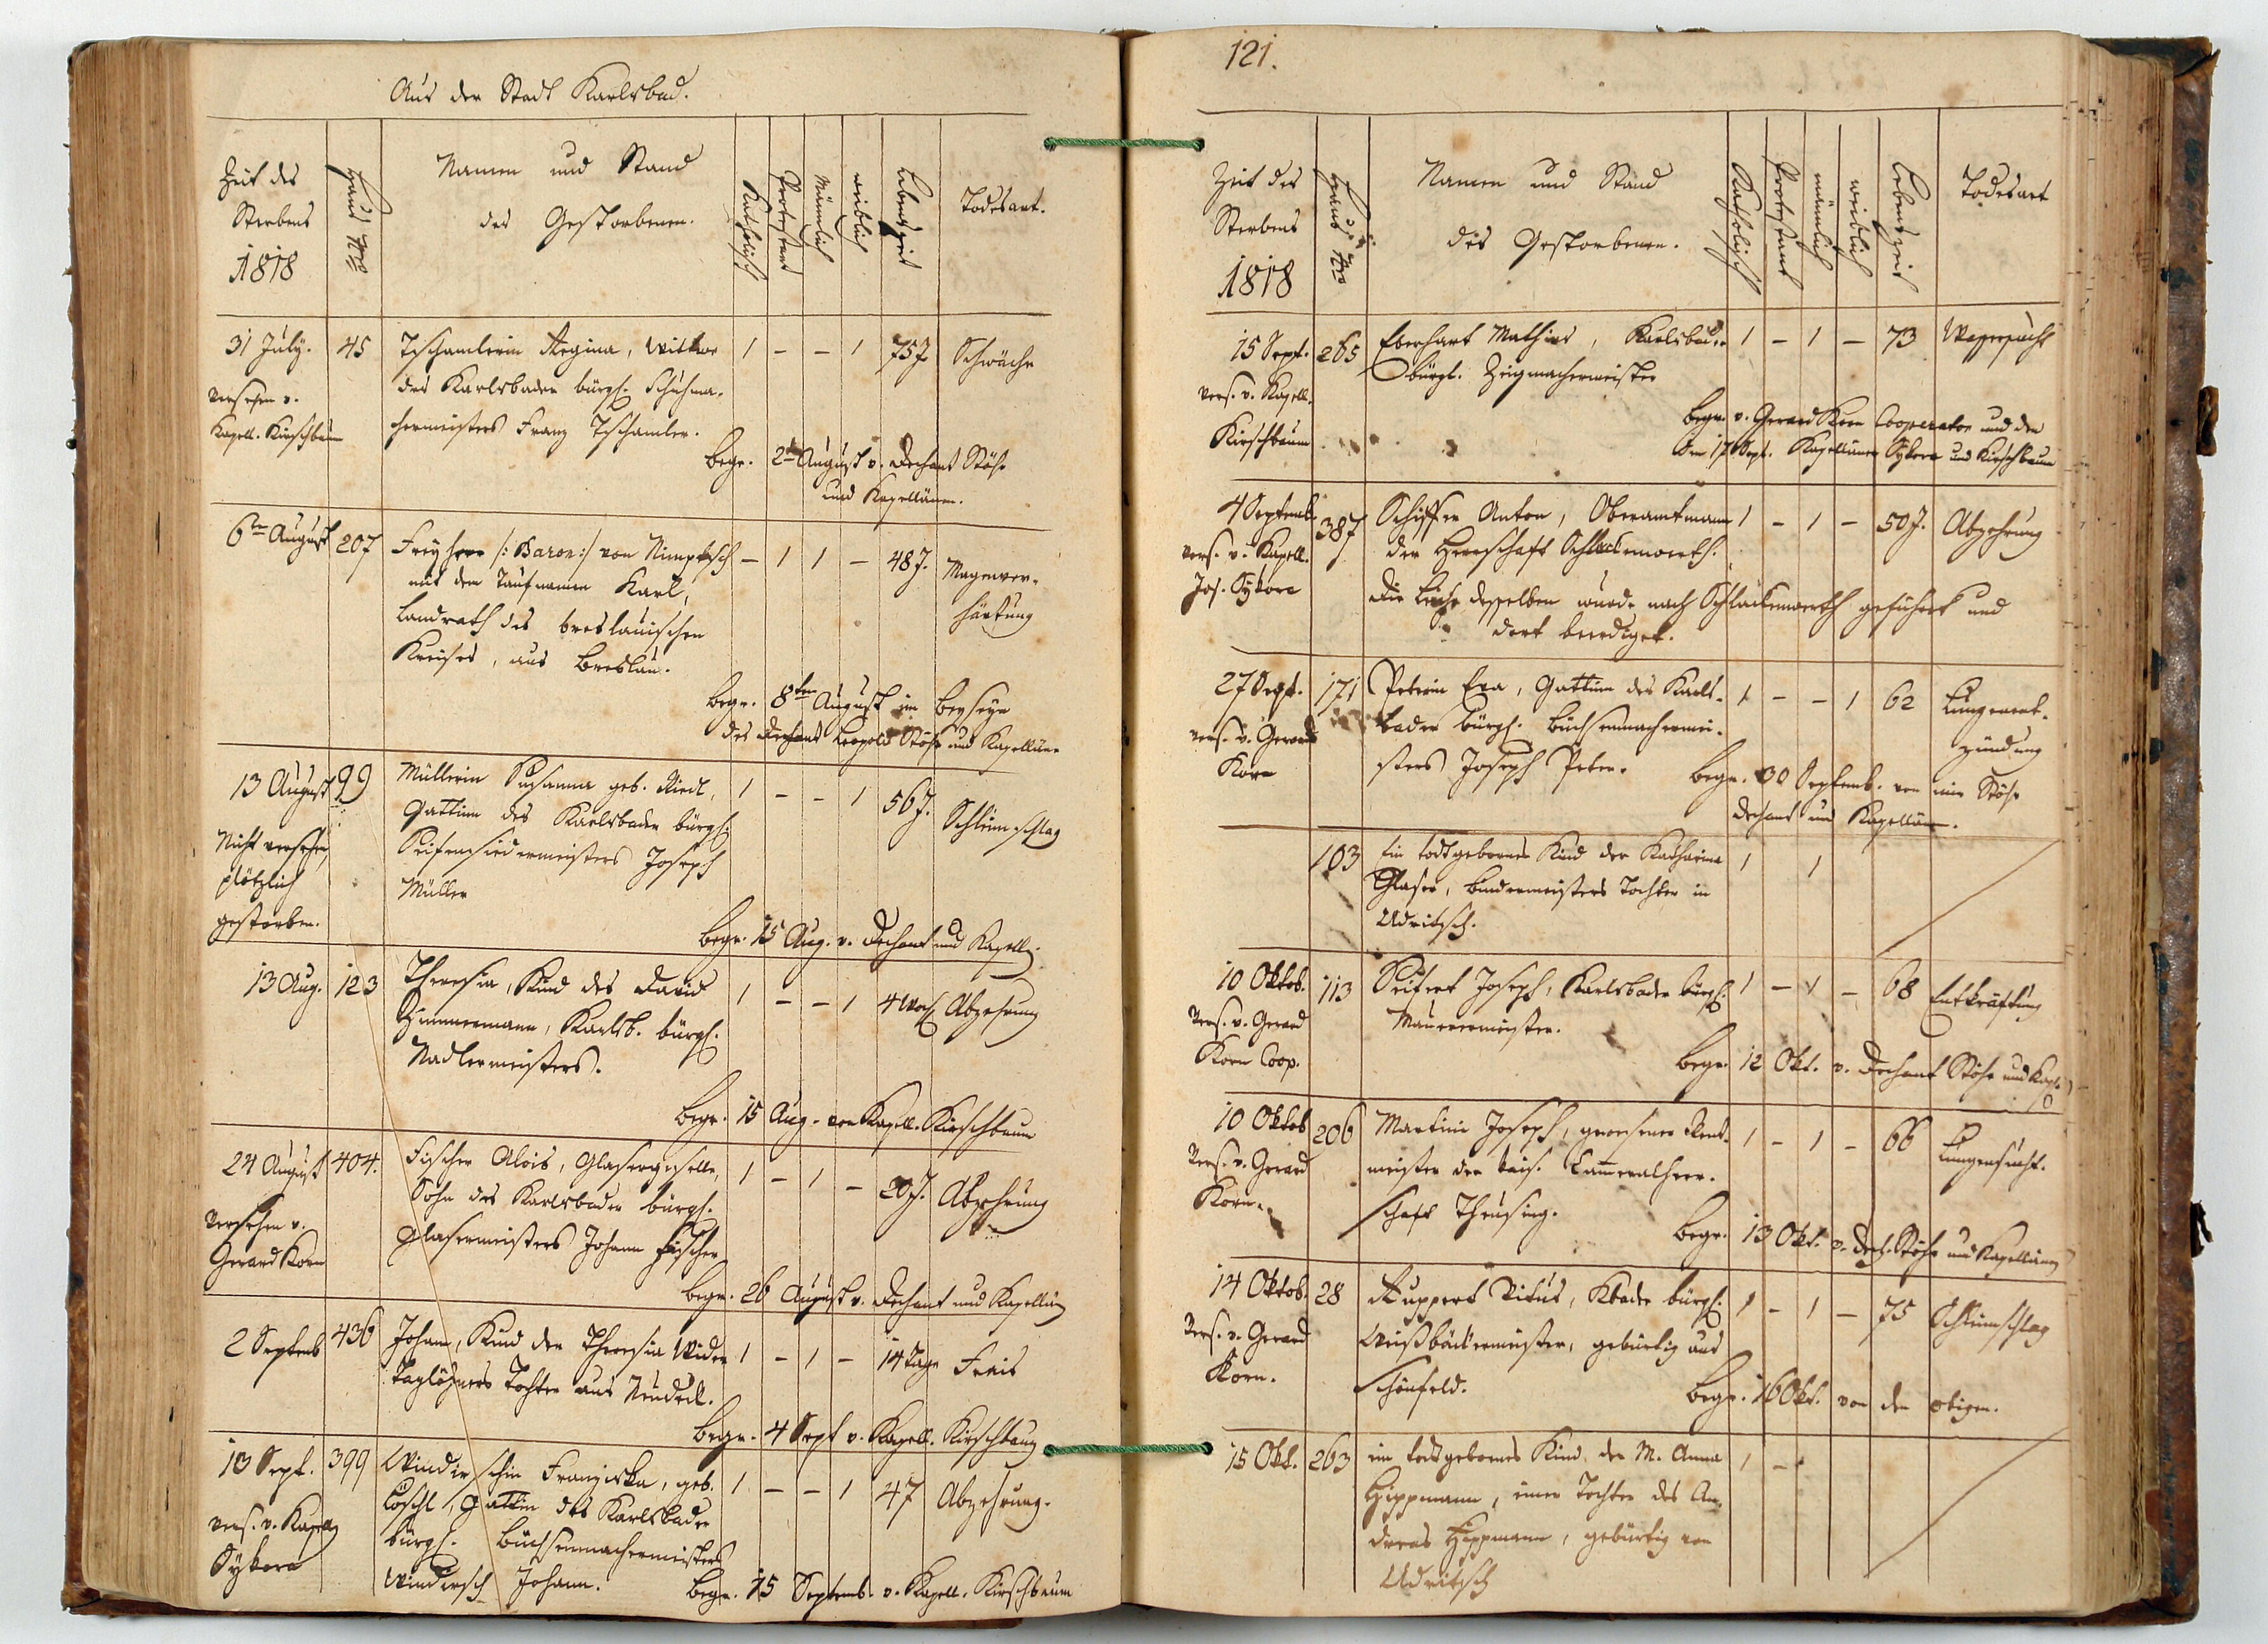 Aus der Stadt Karlsbad.
Zeit des
Sterbens
1818
Haus Nro
Namen und Stand
des Gestorbenen.
Katholisch
Protestant
Männlich
weiblich
Lebenszeit
Todesart.
31 July.
45
Tschamlerin Regina, Wittwe
des Karlsbader bürgl. Schuhma-
chermeisters Franz Tschamler.
1 - - 1
75 J.
Schwäche
Versehen v.
Kapell. Kirschbaum
Begr. 2ten August v. Dechant Stöhr
und Kapellänen.
6ten August
207
Freyherr /: Baron :/ von Nimptsch
mit dem Taufnamen Karl,
Landrath des breslauischen
Kreises, aus Breslau.
- 1 1 -
48 J.
Magenver-
härtung
Begr. 8ten August im Beyseyn
des Dechant Leopold Stöhr und Kapelläne
13 August
99
Müllerin Susanna geb. Riedl,
Gattinn des Karlsbader bürgl.
Seifensiedermeisters Joseph
Müller
1 - - 1
56 J.
Schleimschlag
Nicht versehen,
plötzlich
gestorben.
Begr. 15 Aug. v. Dechant und Kapell.
13 Aug.
123
Theresia, Kind des David
Zimmermann, Karlsb. bürgl.
Nadlermeisters.
1 - - 1
4 Woch
Abzehrung
Begr. 15 Aug. von Kapell. Kirschbaum
24 August
404.
Fischer Alois, Glasergeselle,
Sohn des Karlsbader bürgl.
Glasermeisters Johann Fischer
1 - 1 -
20 J.
Abzehrung
Versehen v.
Gerard Korn
Begr. 26 August v. Dechant und Kapellän
2 Septemb
436
Johann, Kind der Theresia Wider
Taglöhners Tochter aus Neudek.
1 - 1 -
14 Tage
Frais
Begr. 4 Sept v. Kapell. Kirschbaum
13 Sept.
399
Windirschin Franziska, geb.
Löschl, Gattin des Karlsbader
bürgl. Büchsenmachermeisters
Windirsch Johann.
1 - - 1
47
Abzehrung.
vers. v. Kapell
Sykora
Begr. 15 Septemb. v. Kapell. Kirschbaum
121.
Zeit des
Sterbens
1818
Haus Nro
Namen und Stand
des Gestorbenen.
Katholisch
Protestant
männlich
weiblich
Lebenszeit
Todesart
15 Sept.
265
Eberhart Mathias, Karlsbad.
bürgl. Zeugmachermeister
1 - 1 -
73
Wassersucht
vers. v. Kapell.
Kirschbaum
Begr. v. Gerard Korn Cooperator und den
den 17 Sept. Kapellänen Sykora und Kirschbaum
4 Septemb.
387
Schiffer Anton, Oberamtmann
der Herrschaft Schlackenwerth.
1 - 1 -
50 J.
Abzehrung
vers. v. Kapell.
Jos. Sykora
die Leiche desselben wurde nach Schlackenwerth geführt und
dort beerdiget.
27 Sept.
171
Peterin Eva, Gattinn des Karls-
bader bürgl. Büchsenmachermei-
sters Joseph Peter.
1 - - 1
62
Lungenent-
zündung
vers. v. Gerard
Korn
Begr. 30 Septemb. von mir Stöhr
Dechant und Kapellän.
103
Ein todtgebornes Kind der Katharina
Glaser, Bindermeisters Tochter in
Udritsch.
1 1
10 Oktob.
113
Seifert Joseph, Karlsbader bürgl.
Maurermeister.
1 - 1 -
68
Entkräftung
Vers. v. Gerard
Korn Coop.
Begr. 12 Okt. v. Dechant Stöhr und Kapl.
10 Oktob
206
Martini Joseph, gewesener Rent-
meister der kais. Cameralherr-
schaft Theusing.
1 - 1 -
66
Lungensucht.
Vers. v. Gerard
Korn.
Begr. 13 Okt. v. Dech. Stöhr und Kapellänen
14 Oktob.
28
Ruppert Vitus, Kbader bürgl.
Weißbäckermeister, gebürtig aus
Schönfeld.
1 - 1 -
75
Schleimschlag
Vers. v. Gerard
Korn.
Begr. 16 Okt. von den obigen.
15 Okt.
263
ein todtgebornes Kind, der M. Anna
Hippmann, einer Tochter des An-
dreas Hippmann, gebürtig von
Udritsch
1 -